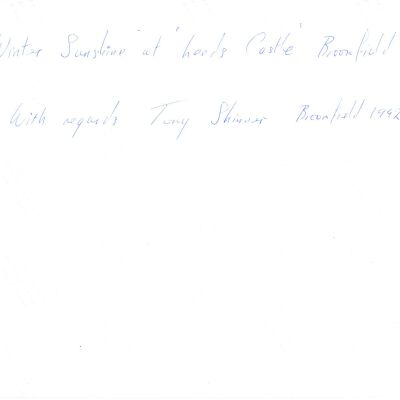 Winter Sunshine" at 'Leeds Castle' Broomfield
With regards Tony Skinner Broomfield 1992